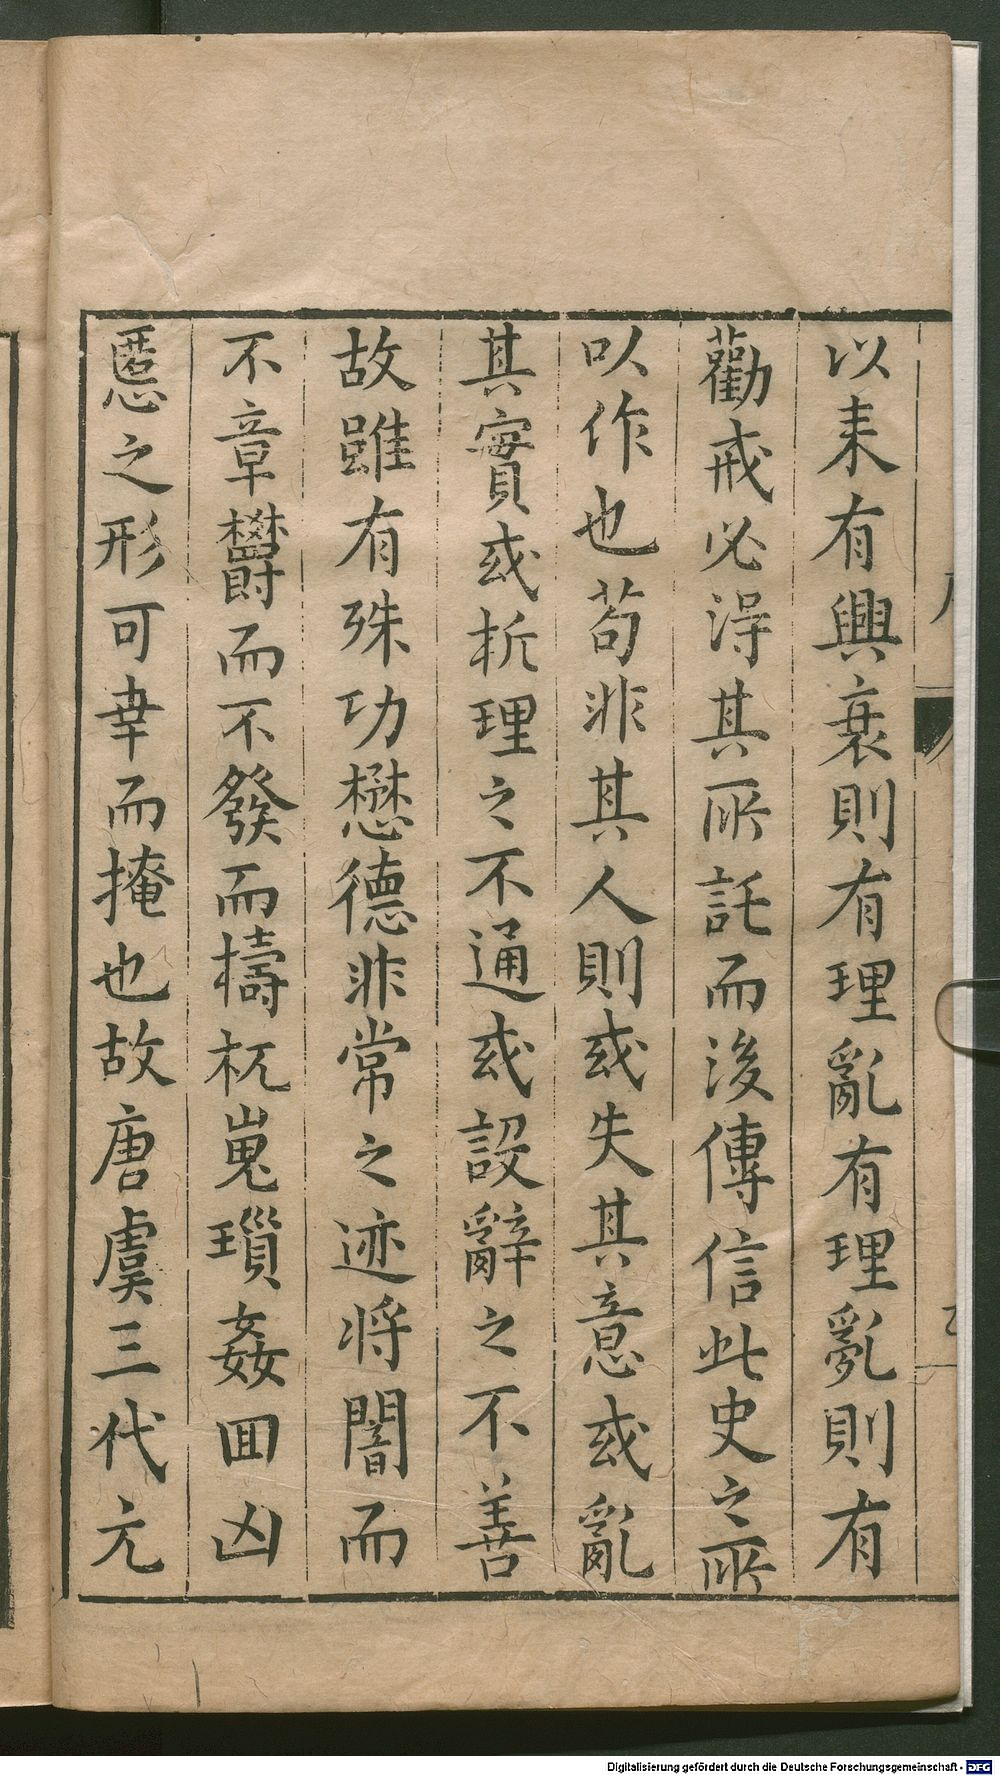 以来有興衰則有理亂有理亂則有
勸戒必淂其所託而後傳信此史之所
以作也苟非其人則或失其意或亂
其實或析理之不通或設辭之不善
故雖有殊功懋德非常之迹将闇而
不章欝而不發而檮杌嵬瑣姦回凶
慝之形可幸而掩也故唐虞三代元
Digitalisierung gefördert durch die Deutsche Forschungsgemeinschaft - DFG